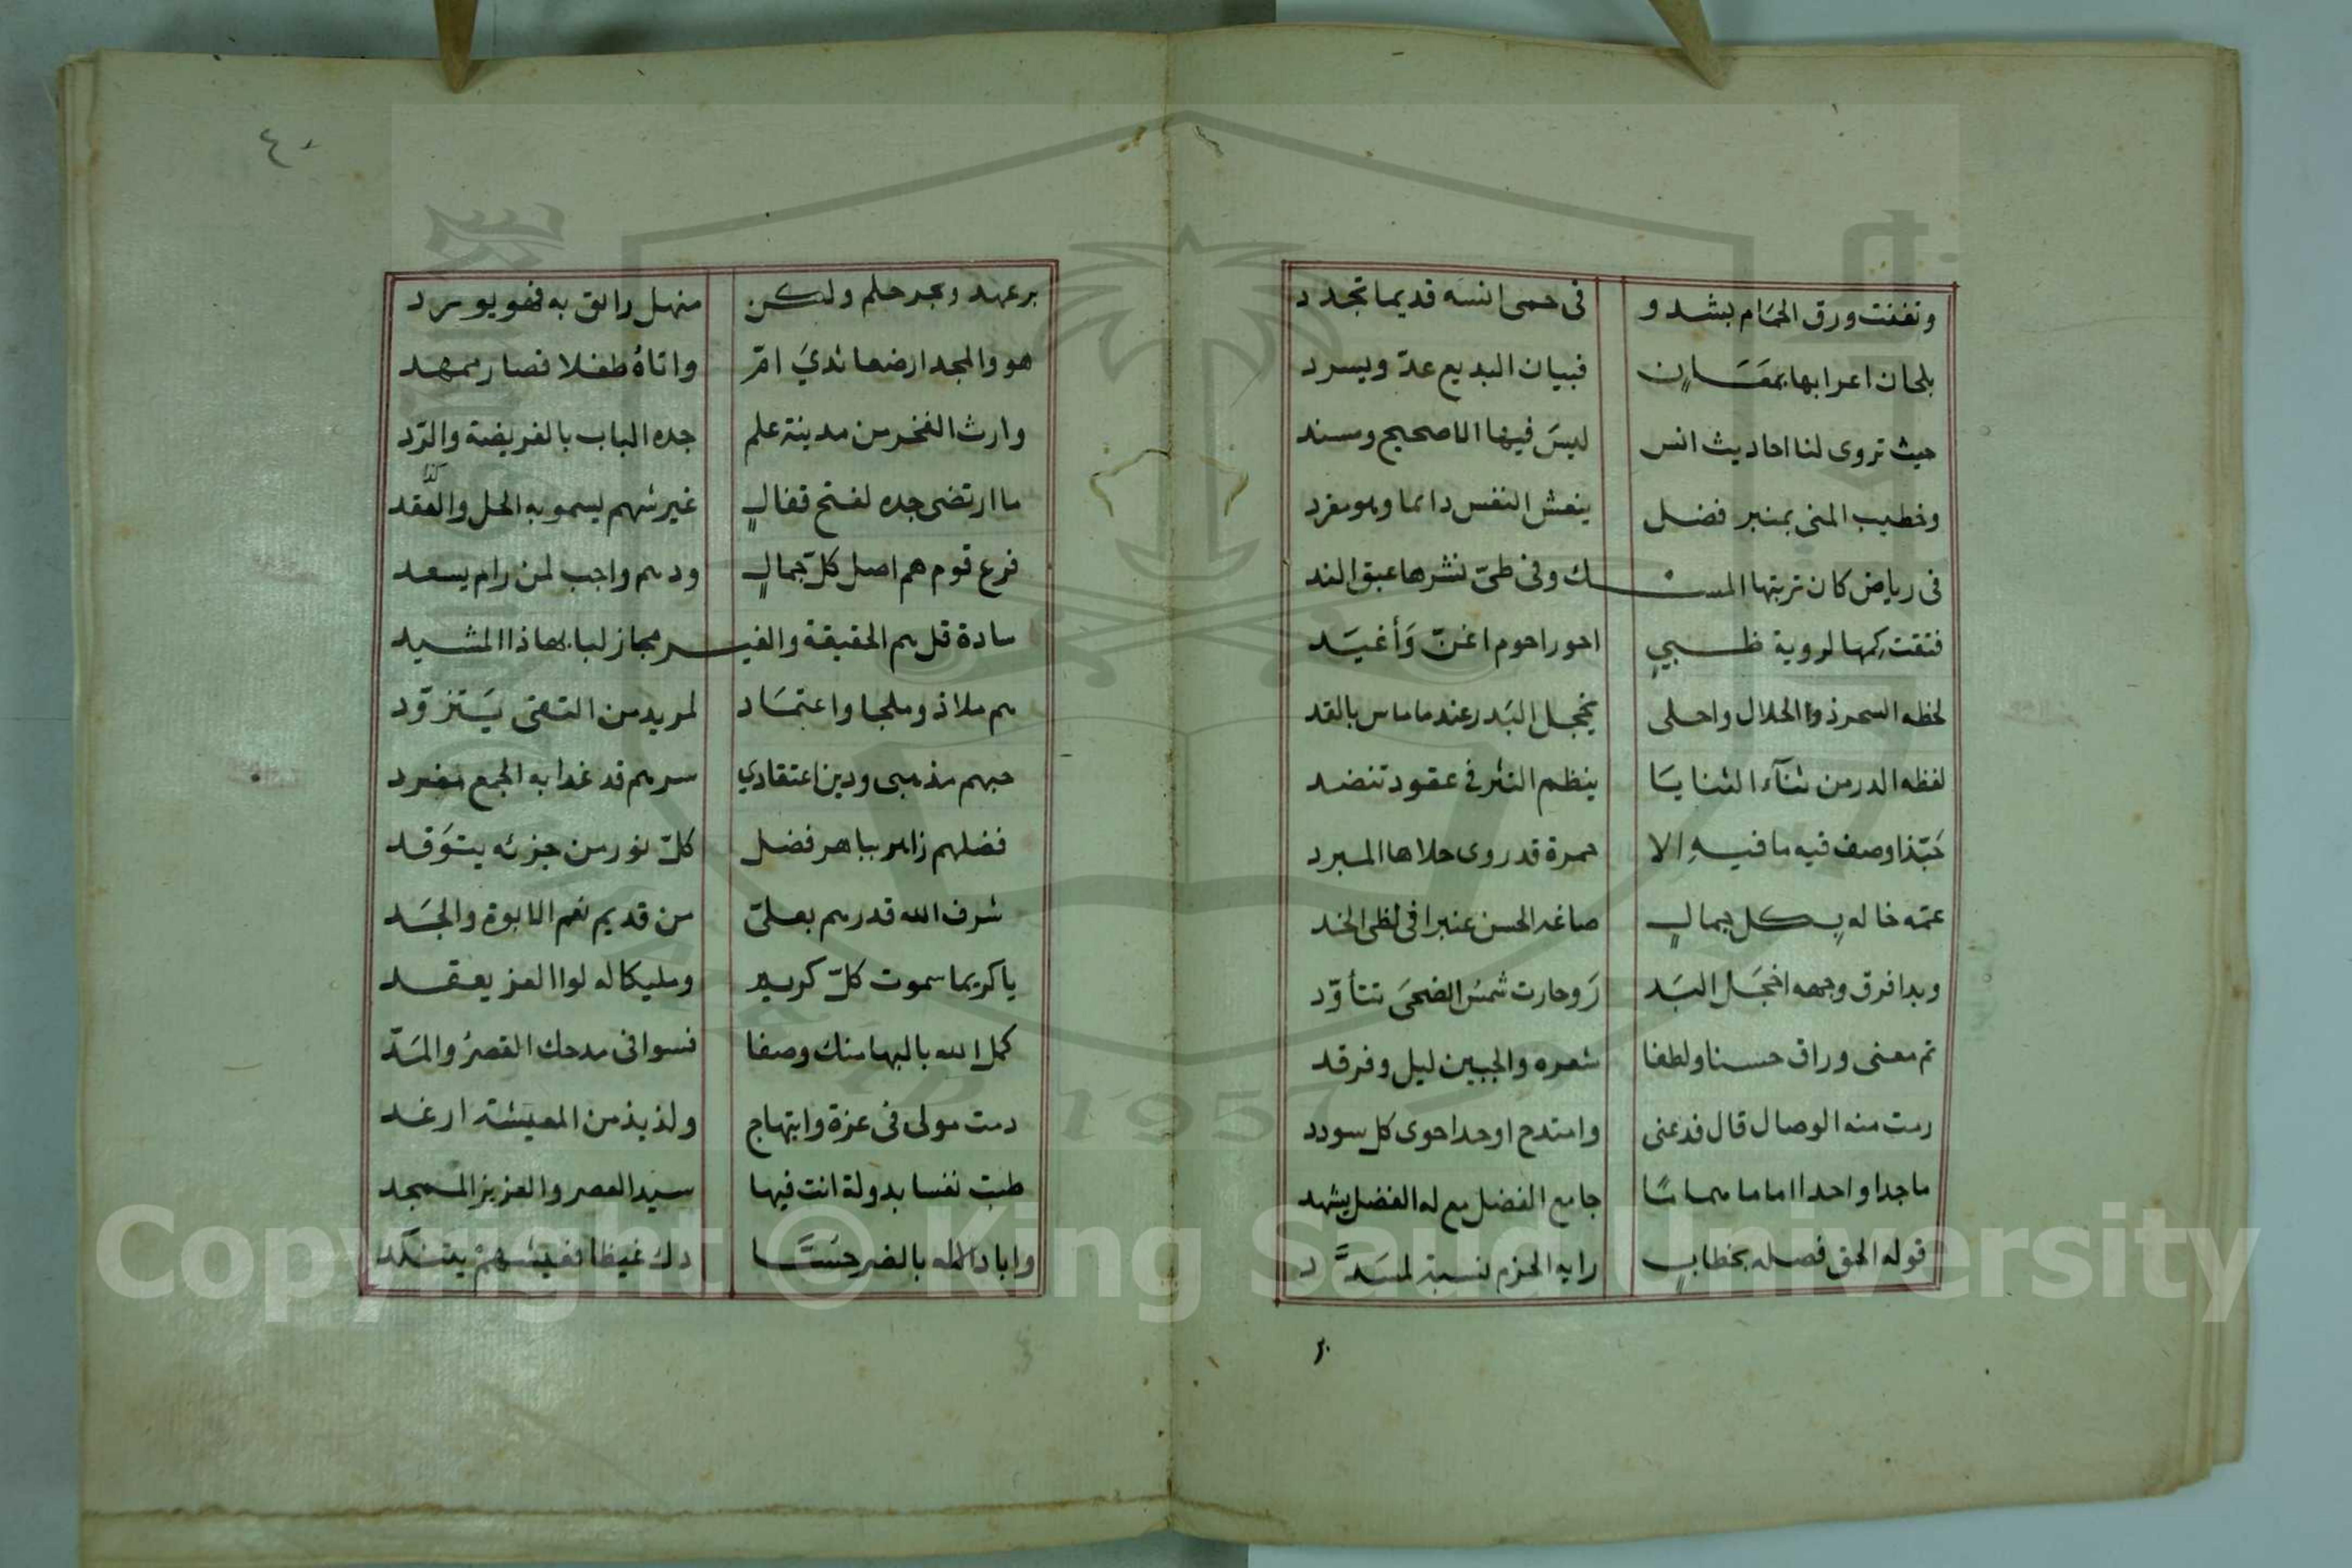 وتغنت ورق الحمام بشدو في حمى انسه قديما تجدد
بلحان اعرابها بمغان فبيان البديع عدّ ويسرد
حيث تروى لنا احاديث انس ليسَ فيها الا صحيح ومسند
وخطيب المنى بمنبر فضل ينعش النفس دائما وهو مفرد
في رياض كان تربتها المسك وفي طيّ نشرها عبق الند
فتقت كمها لروية ظبيٍ احور احوم اغنّ وَأغيَد
لحظه السحر ذو الحلال واحلى يخجل البَدر عندما ماس بالقد
لفظه الدر من ثنآء الثنايَا ينظم النثر في عقود تنضد
حَبّذا وصف فيه ما فيهِ الا حمرة قد روى حلاها المبرد
عمّه خاله بكل جمالٍ صاغه الحسن عنبرا في لظى الخد
وبدا فرق وجهه اخجَل البَد رَ وحارت شمسُ الضحىَ تتأوّد
تم معنى وراق حسنا ولطفا شعره والجبين ليل وفرقد
رمت منه الوصال قال فدعنى وامتدح اوحدا حوى كل سودد
ماجدا واحدا اماما هماما جامع الفضل مع له الفضل يشهد
قوله الحق فصله بخطابٍ رايه الحزم نسبة لمسَدَّد
٤٠
بر عهد وبحر حلم ولكن منهل رائق به فهو يورد
هو والمجد ارضعا ثديَ امّ واتاهُ طفلا فصار ممهد
وارث الفخر من مدينة علم جده الباب بالفريضة والرّد
ما ارتضى جده لفتح قفالٍ غير شهم يسمو به الحل والعقد
فرع قوم هم اصل كلّ جمالٍ ودهم واجب لمن رام يسعد
سادة قل هم الحقيقة والغير مجاز لبابها ذا المشيد
هم ملاذ وملجا واعتمَاد لمريد من التقى يَتزوّد
حبهم مذهبى ودين اعتقادي سرهم قد غدا به الجمع مفرد
فضلهم زاهر بباهر فضل كلّ نور من جزئه يتوَقد
شرف الله قدرهم بعلىّ من قديم نعم الابوة والجَد
يا كريما سموت كلّ كريم ومليكا له لوا العز يعقد
كمل الله بالبها منك وصفا فسوا في مدحك القصرُ والمَدّ
دمت مولى في عزة وابتهاج ولذيذ من المعيشة ارغد
طبت نفسا بدولة انت فيها سيد العصر والعزيز الممجد
واباد الاله بالضر حسَّا دك غيظا فعيشهمْ يتنكد
Copyright © King Saud University
1957